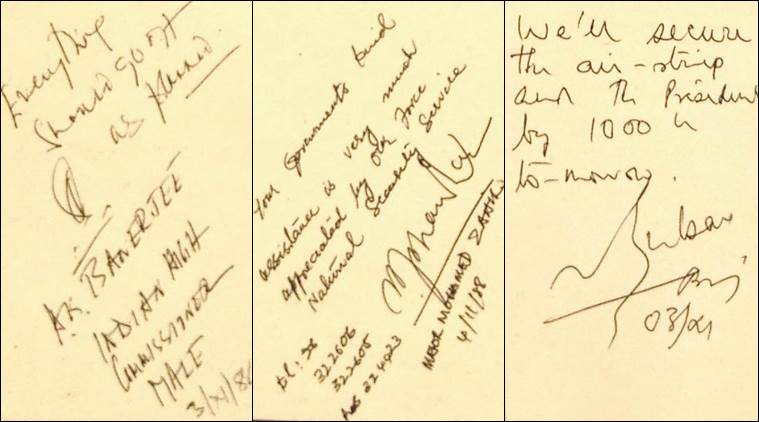 Everything
should go off
as planned.
A.K. BANERJEE
INDIAN HIGH
COMMISSIONER
MALE
3/XI/88
Your Governments kind
assistance is very much
appreciated by our Force
National Security Service
MAJOR MOHAMED ZAHIR
4/11/88
322606
322605
324023
We'll secure
the air-strip
and the President
by 1000 h
to-morrow.